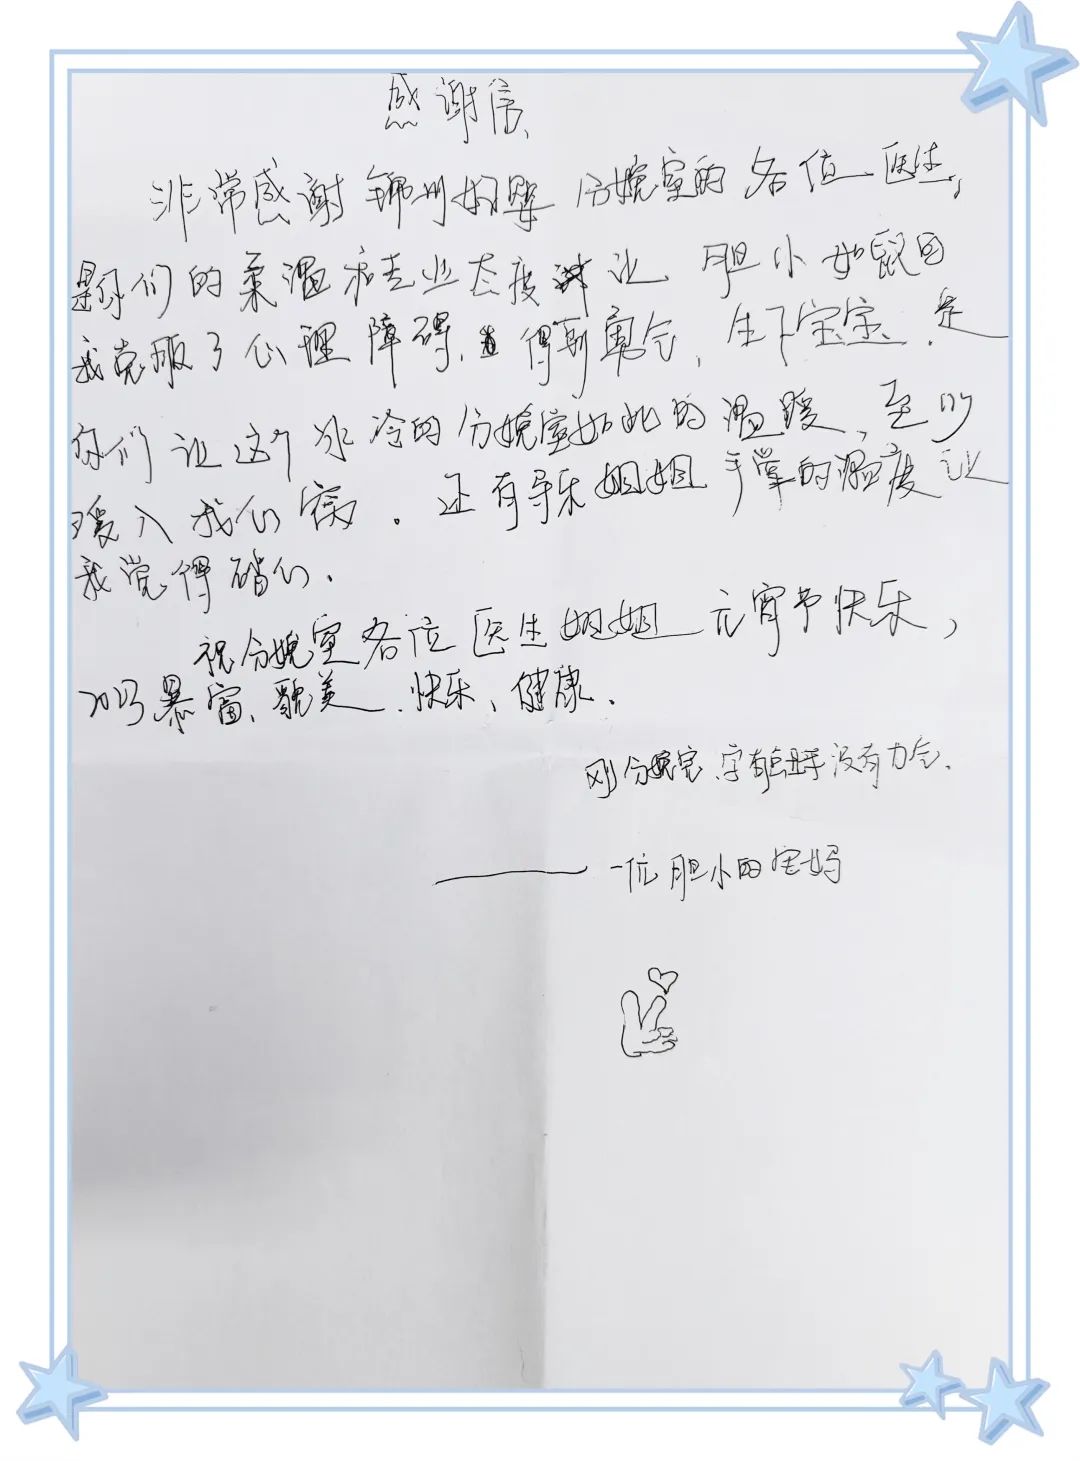 感谢信
非常感谢锦州妇婴分娩室的各位医生,
是你们的柔温和专业态度让胆小如鼠的
我克服了心理障碍,得到勇气,生下宝宝.是
你们让这个冰冷的分娩室如此的温暖,至少
暖入我们.还有导乐姐姐手掌的温度让
我觉得踏们.
祝分娩室各位医生姐姐元宵节快乐,
2023暴富、靓美、快乐、健康.
刚分娩完,字有丑乎没有力气.
一位胆小的宝妈